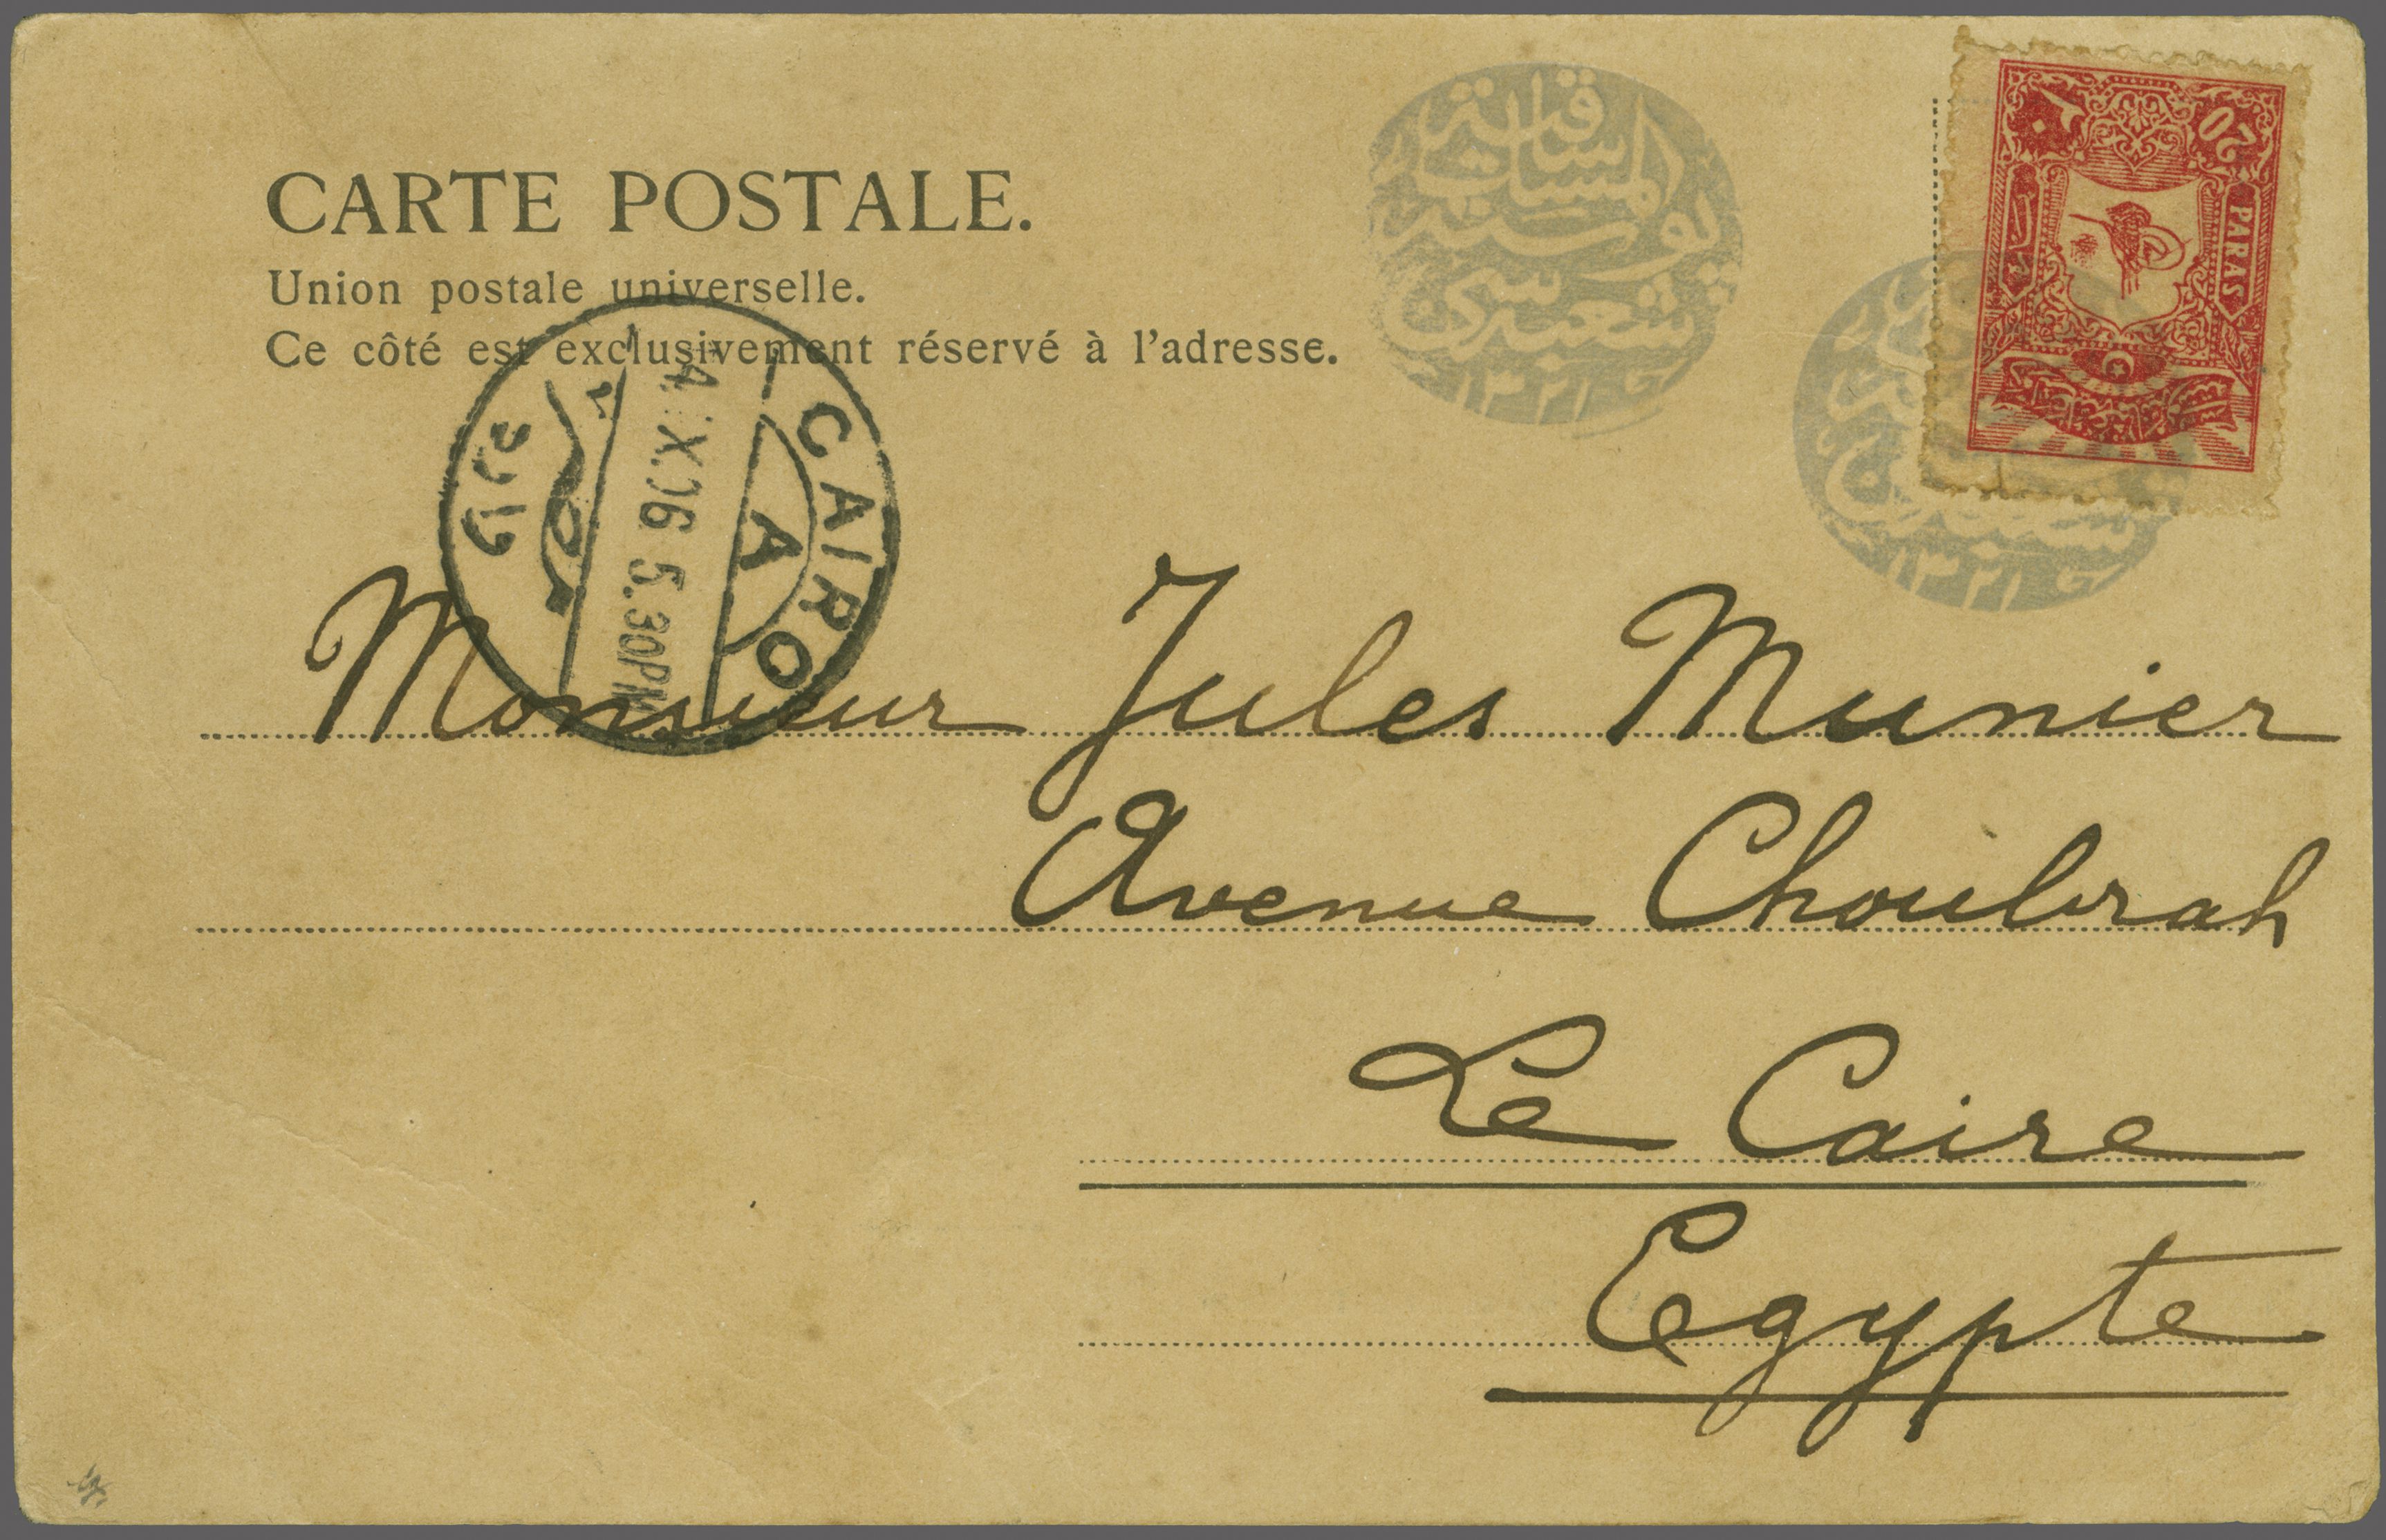 CARTE POSTALE.
Union postale universelle.
Ce côté est exclusivement réservé à l'adresse.
20
PARAS
٢٠
CAIRO
A
4. X. 06 5.30PM
قاهره
١٣٢١
١٣٢١
Monsieur Jules Munier
Avenue Choubrah
Le Caire
Egypte